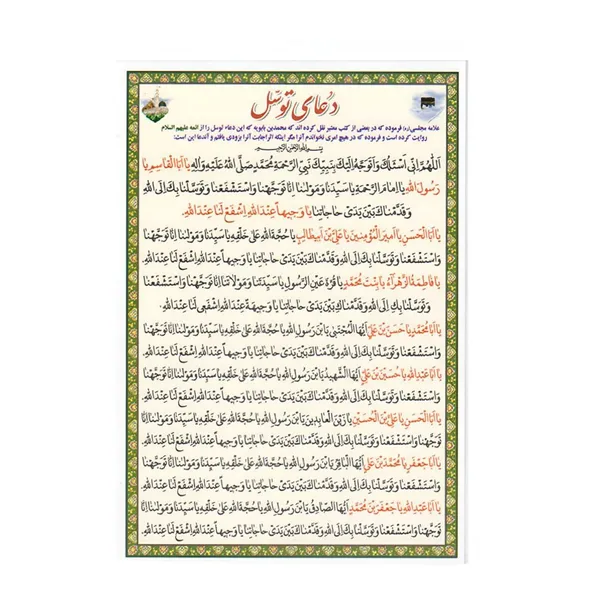 دعای توسل
علامه مجلسی(ره) فرموده که در بعضی از کتب معتبر نقل کرده اند که محمدبن بابویه که این دعاء توسل را از ائمه علیهم السلام
روایت کرده است و فرموده که در هیچ امری نخواندم آنرا مگر اینکه اثراجابت آنرا بزودی یافتم و آندعا این است:
بِسْمِ اللهِ الرَّحْمٰنِ الرَّحِیمِ
اَللّٰهُمَّ اِنّی اَسْئَلُکَ وَاَتَوَجَّهُ اِلَیْکَ بِنَبِیِّکَ نَبِیِّ الرَّحْمَةِ مُحَمَّدٍ صَلَّی اللهُ عَلَیْهِ وَالِهِ یا اَبَا الْقاسِمِ یا
رَسُولَ اللهِ یا اِمامَ الرَّحْمَةِ یا سَیِّدَنا وَمَوْلٰینا اِنّا تَوَجَّهْنا وَاسْتَشْفَعْنا وَتَوَسَّلْنا بِکَ اِلَی اللهِ
وَقَدَّمْناکَ بَیْنَ یَدَیْ حاجاتِنا یا وَجیهاً عِنْدَ اللهِ اِشْفَعْ لَنا عِنْدَ اللهِ.
یا اَبَا الْحَسَنِ یا اَمیرَ الْمُؤْمِنینَ یا عَلِیَّ بْنَ اَبیطالِبٍ یا حُجَّةَ اللهِ عَلی خَلْقِهِ یا سَیِّدَنا وَمَوْلٰینا اِنّا تَوَجَّهْنا
وَاسْتَشْفَعْنا وَتَوَسَّلْنا بِکَ اِلَی اللهِ وَقَدَّمْناکَ بَیْنَ یَدَیْ حاجاتِنا یا وَجیهاً عِنْدَ اللهِ اِشْفَعْ لَنا عِنْدَ اللهِ.
یا فاطِمَةَ الزَّهْرآءُ یا بِنْتَ مُحَمَّدٍ یا قُرَّةَ عَیْنِ الرَّسُولِ یا سَیِّدَتَنا وَمَوْلاتَنا اِنّا تَوَجَّهْنا وَاسْتَشْفَعْنا
وَتَوَسَّلْنا بِکِ اِلَی اللهِ وَقَدَّمْناکِ بَیْنَ یَدَیْ حاجاتِنا یا وَجیهَةً عِنْدَ اللهِ اِشْفَعی لَنا عِنْدَ اللهِ.
یا اَبا مُحَمَّدٍ یا حَسَنَ بْنَ عَلِیٍّ اَیُّهَا الْمُجْتَبٰی یَا بْنَ رَسُولِ اللهِ یا حُجَّةَ اللهِ عَلی خَلْقِهِ یا سَیِّدَنا وَمَوْلٰینا اِنّا تَوَجَّهْنا
وَاسْتَشْفَعْنا وَتَوَسَّلْنا بِکَ اِلَی اللهِ وَقَدَّمْناکَ بَیْنَ یَدَیْ حاجاتِنا یا وَجیهاً عِنْدَ اللهِ اِشْفَعْ لَنا عِنْدَ اللهِ.
یا اَبا عَبْدِ اللهِ یا حُسَیْنَ بْنَ عَلِیٍّ اَیُّهَا الشَّهیدُ یَا بْنَ رَسُولِ اللهِ یا حُجَّةَ اللهِ عَلی خَلْقِهِ یا سَیِّدَنا وَمَوْلٰینا اِنّا تَوَجَّهْنا
وَاسْتَشْفَعْنا وَتَوَسَّلْنا بِکَ اِلَی اللهِ وَقَدَّمْناکَ بَیْنَ یَدَیْ حاجاتِنا یا وَجیهاً عِنْدَ اللهِ اِشْفَعْ لَنا عِنْدَ اللهِ.
یا اَبَا الْحَسَنِ یا عَلِیَّ بْنَ الْحُسَیْنِ یا زَیْنَ الْعابِدینَ یَا بْنَ رَسُولِ اللهِ یا حُجَّةَ اللهِ عَلی خَلْقِهِ یا سَیِّدَنا وَمَوْلٰینا اِنّا
تَوَجَّهْنا وَاسْتَشْفَعْنا وَتَوَسَّلْنا بِکَ اِلَی اللهِ وَقَدَّمْناکَ بَیْنَ یَدَیْ حاجاتِنا یا وَجیهاً عِنْدَ اللهِ اِشْفَعْ لَنا عِنْدَ اللهِ.
یا اَبا جَعْفَرٍ یا مُحَمَّدَ بْنَ عَلِیٍّ اَیُّهَا الْباقِرُ یَا بْنَ رَسُولِ اللهِ یا حُجَّةَ اللهِ عَلی خَلْقِهِ یا سَیِّدَنا وَمَوْلٰینا اِنّا
تَوَجَّهْنا وَاسْتَشْفَعْنا وَتَوَسَّلْنا بِکَ اِلَی اللهِ وَقَدَّمْناکَ بَیْنَ یَدَیْ حاجاتِنا یا وَجیهاً عِنْدَ اللهِ اِشْفَعْ لَنا عِنْدَ اللهِ.
یا اَبا عَبْدِ اللهِ یا جَعْفَرَ بْنَ مُحَمَّدٍ اَیُّهَا الصّادِقُ یَا بْنَ رَسُولِ اللهِ یا حُجَّةَ اللهِ عَلی خَلْقِهِ یا سَیِّدَنا وَمَوْلٰینا اِنّا
تَوَجَّهْنا وَاسْتَشْفَعْنا وَتَوَسَّلْنا بِکَ اِلَی اللهِ وَقَدَّمْناکَ بَیْنَ یَدَیْ حاجاتِنا یا وَجیهاً عِنْدَ اللهِ اِشْفَعْ لَنا عِنْدَ اللهِ.